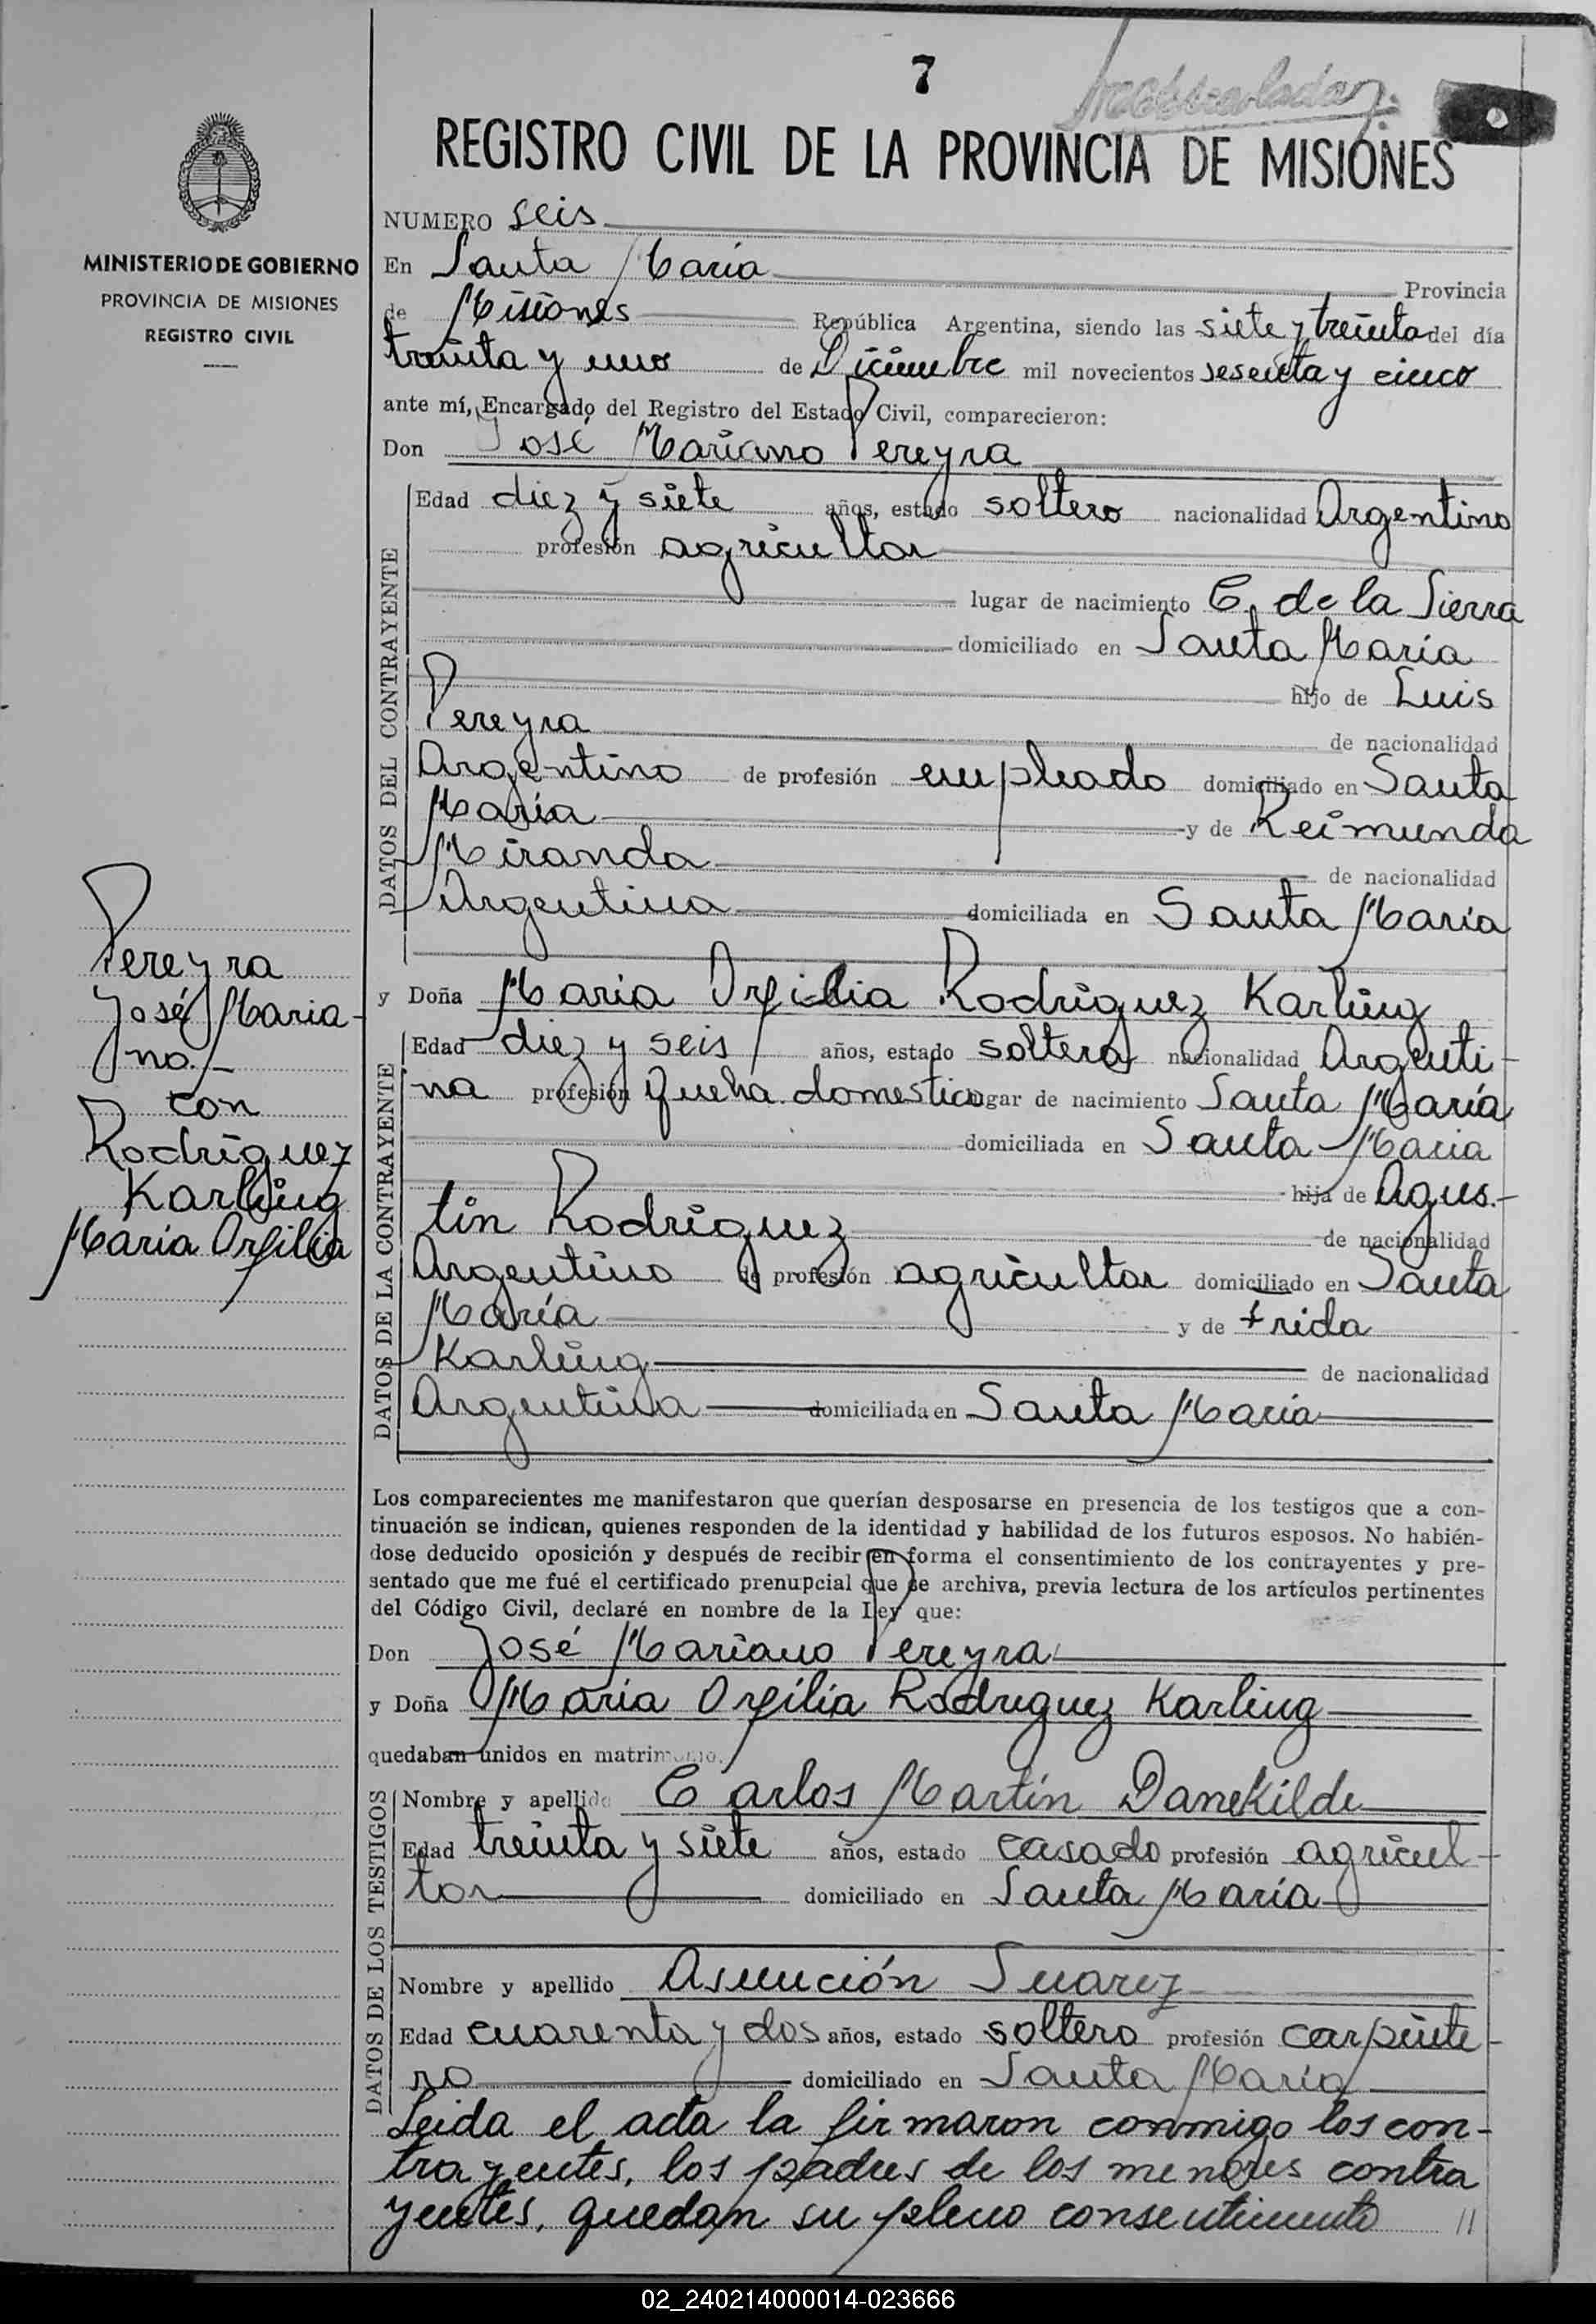 7
REGISTRO CIVIL DE LA PROVINCIA DE MISIONES
MINISTERIO DE GOBIERNO
PROVINCIA DE MISIONES
REGISTRO CIVIL
NUMERO seis
En Santa Maria Provincia
de Misiones República Argentina, siendo las siete y treinta del día
treinta y uno de Diciembre mil novecientos sesenta y cinco
ante mí, Encargado del Registro del Estado Civil, comparecieron:
Don José Mariano Pereyra
DATOS DEL CONTRAYENTE
Edad diez y siete años, estado soltero nacionalidad Argentino
profesión agricultor
lugar de nacimiento C. de la Sierra
domiciliado en Santa María
hijo de Luis
Pereyra de nacionalidad
Argentino de profesión empleado domiciliado en Santa
María y de Reimunda
Miranda de nacionalidad
Argentina domiciliada en Santa María
Pereyra
José Maria-
no.-
con
Rodriguez
Karling
Maria Orfilia
y Doña Maria Orfilia Rodriguez Karling
DATOS DE LA CONTRAYENTE
Edad diez y seis años, estado soltera nacionalidad Argenti-
na profesión Queha. domestico lugar de nacimiento Santa María
domiciliada en Santa Maria
hija de Agus.-
tin Rodriguez de nacionalidad
Argentino de profesión agricultor domiciliado en Santa
María y de Frida
Karling de nacionalidad
Argentina domiciliada en Santa Maria
Los comparecientes me manifestaron que querían desposarse en presencia de los testigos que a con-
tinuación se indican, quienes responden de la identidad y habilidad de los futuros esposos. No habién-
dose deducido oposición y después de recibir en forma el consentimiento de los contrayentes y pre-
sentado que me fué el certificado prenupcial que se archiva, previa lectura de los artículos pertinentes
del Código Civil, declaré en nombre de la Ley que:
Don José Mariano Pereyra
y Doña Maria Orfilia Rodriguez Karling
quedaban unidos en matrimonio.
DATOS DE LOS TESTIGOS
Nombre y apellido Carlos Martín Danekilde
Edad treinta y siete años, estado casado profesión agricul-
tor domiciliado en Santa María
Nombre y apellido Asunción Suarez
Edad cuarenta y dos años, estado soltero profesión carpinte-
ro domiciliado en Santa María
Leida el acta la firmaron conmigo los con-
trayentes, los padres de los menores contra
yentes, quedan su pleno consentimiento //
02_240214000014-023666